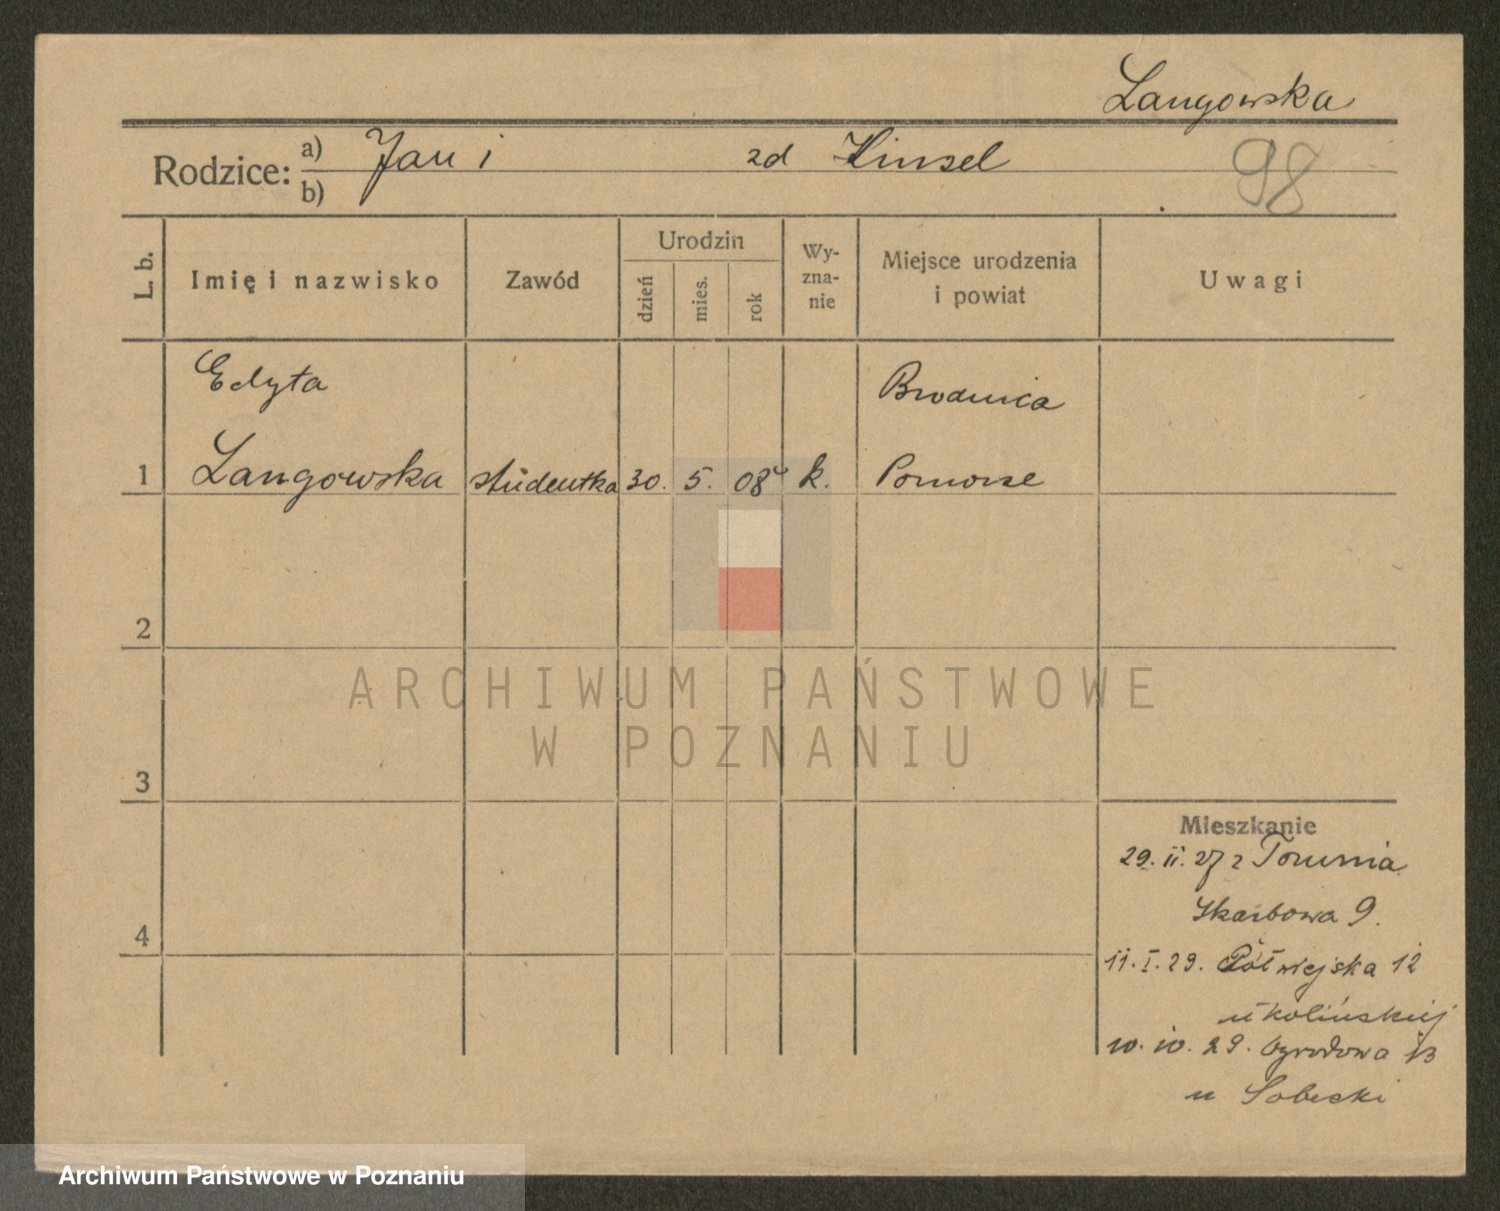 Langowska
Rodzice: a) Jan i zd Kinsel
b)
98
L. b. Imię i nazwisko Zawód Urodzin dzień mies. rok Wy-zna-nie Miejsce urodzenia i powiat Uwagi
Edyta Brodnica
1 Langowska studentka 30. 5. 08 k. Pomorze
2
ARCHIWUM PAŃSTWOWE
W POZNANIU
3
Mieszkanie
29. II. 27 z Torunia
Skarbowa 9.
4
11. I. 29. Półwiejska 12
u Kolińskiej
10. 10. 29. Ogrodowa 13
u Sobecki
Archiwum Państwowe w Poznaniu